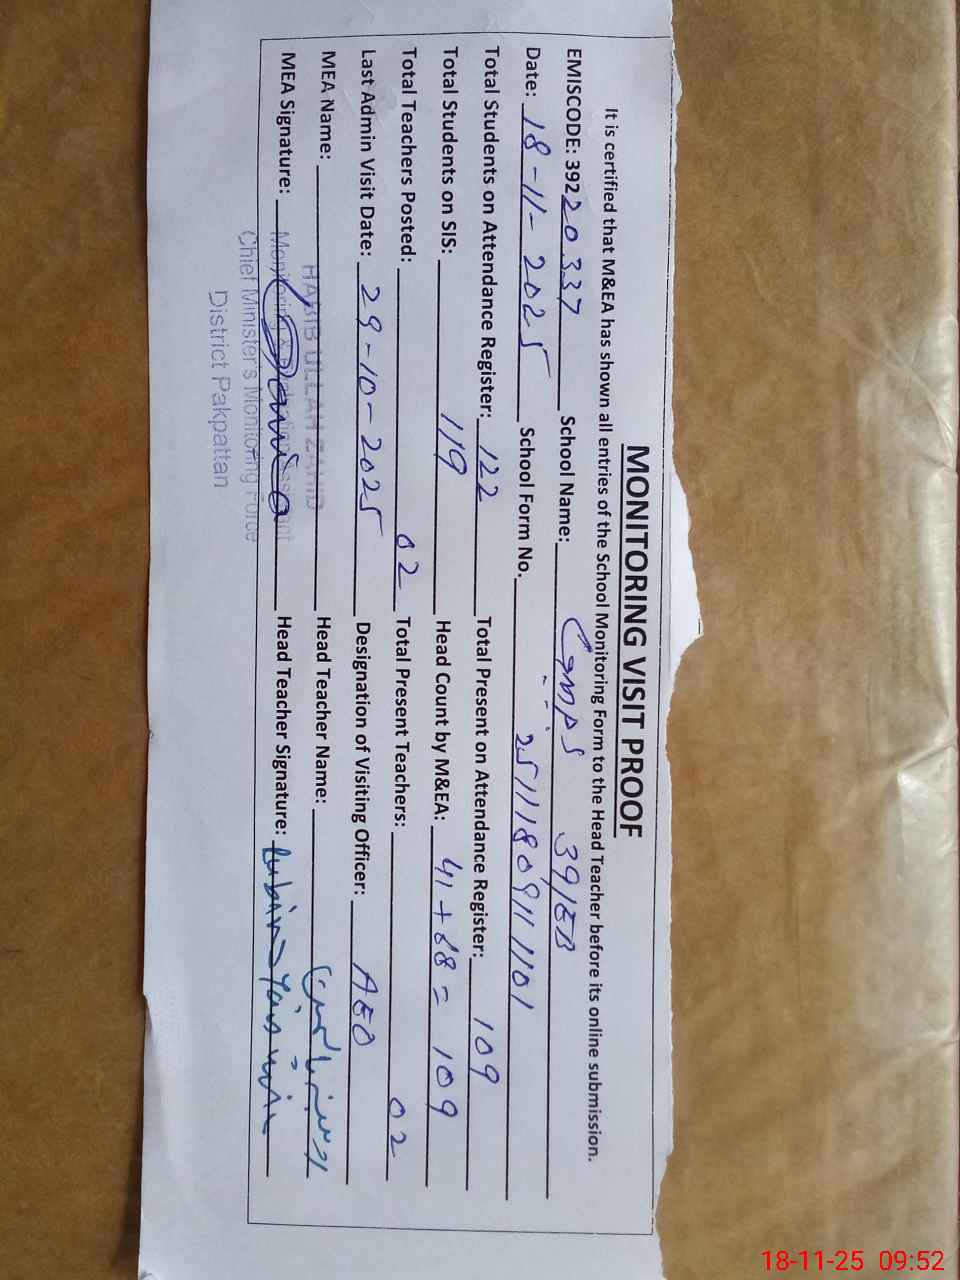 MONITORING VISIT PROOF
It is certified that M&EA has shown all entries of the School Monitoring Form to the Head Teacher before its online submission.
EMISCODE: 39220337 School Name: GMPS 39/EB
Date: 18-11-2025 School Form No. 25111809111101
Total Students on Attendance Register: 122 Total Present on Attendance Register: 109
Total Students on SIS: 119 Head Count by M&EA: 41+68= 109
Total Teachers Posted: 02 Total Present Teachers: 02
Last Admin Visit Date: 29-10-2025 Designation of Visiting Officer: AEO
MEA Name: HABIB ULLAH ZAHID Head Teacher Name:
MEA Signature: Head Teacher Signature:
Monitoring & Evaluation Assistant
Chief Minister's Monitoring Force
District Pakpattan
18-11-25 09:52